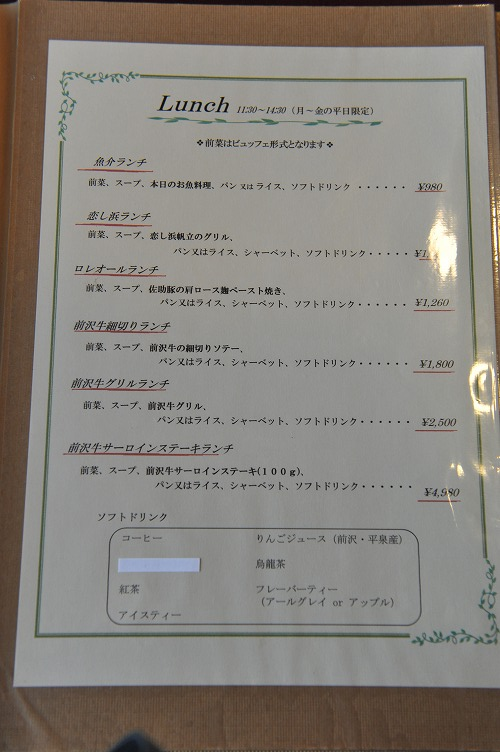 Lunch 11:30～14:30（月～金の平日限定）
❖前菜はビュッフェ形式となります❖
魚介ランチ
前菜、スープ、本日のお魚料理、パン又はライス、ソフトドリンク・・・・・・ ¥980
恋し浜ランチ
前菜、スープ、恋し浜帆立のグリル、
パン又はライス、シャーベット、ソフトドリンク・・・・・・
ロレオールランチ
前菜、スープ、佐助豚の肩ロース麹ペースト焼き、
パン又はライス、シャーベット、ソフトドリンク・・・・・・ ¥1,260
前沢牛細切りランチ
前菜、スープ、前沢牛の細切りソテー、
パン又はライス、シャーベット、ソフトドリンク・・・・・・ ¥1,800
前沢牛グリルランチ
前菜、スープ、前沢牛グリル、
パン又はライス、シャーベット、ソフトドリンク・・・・・・ ¥2,500
前沢牛サーロインステーキランチ
前菜、スープ、前沢牛サーロインステーキ(１００ｇ)、
パン又はライス、シャーベット、ソフトドリンク・・・・・・ ¥4,980
ソフトドリンク
コーヒー りんごジュース（前沢・平泉産）
烏龍茶
紅茶 フレーバーティー
（アールグレイ or アップル）
アイスティー